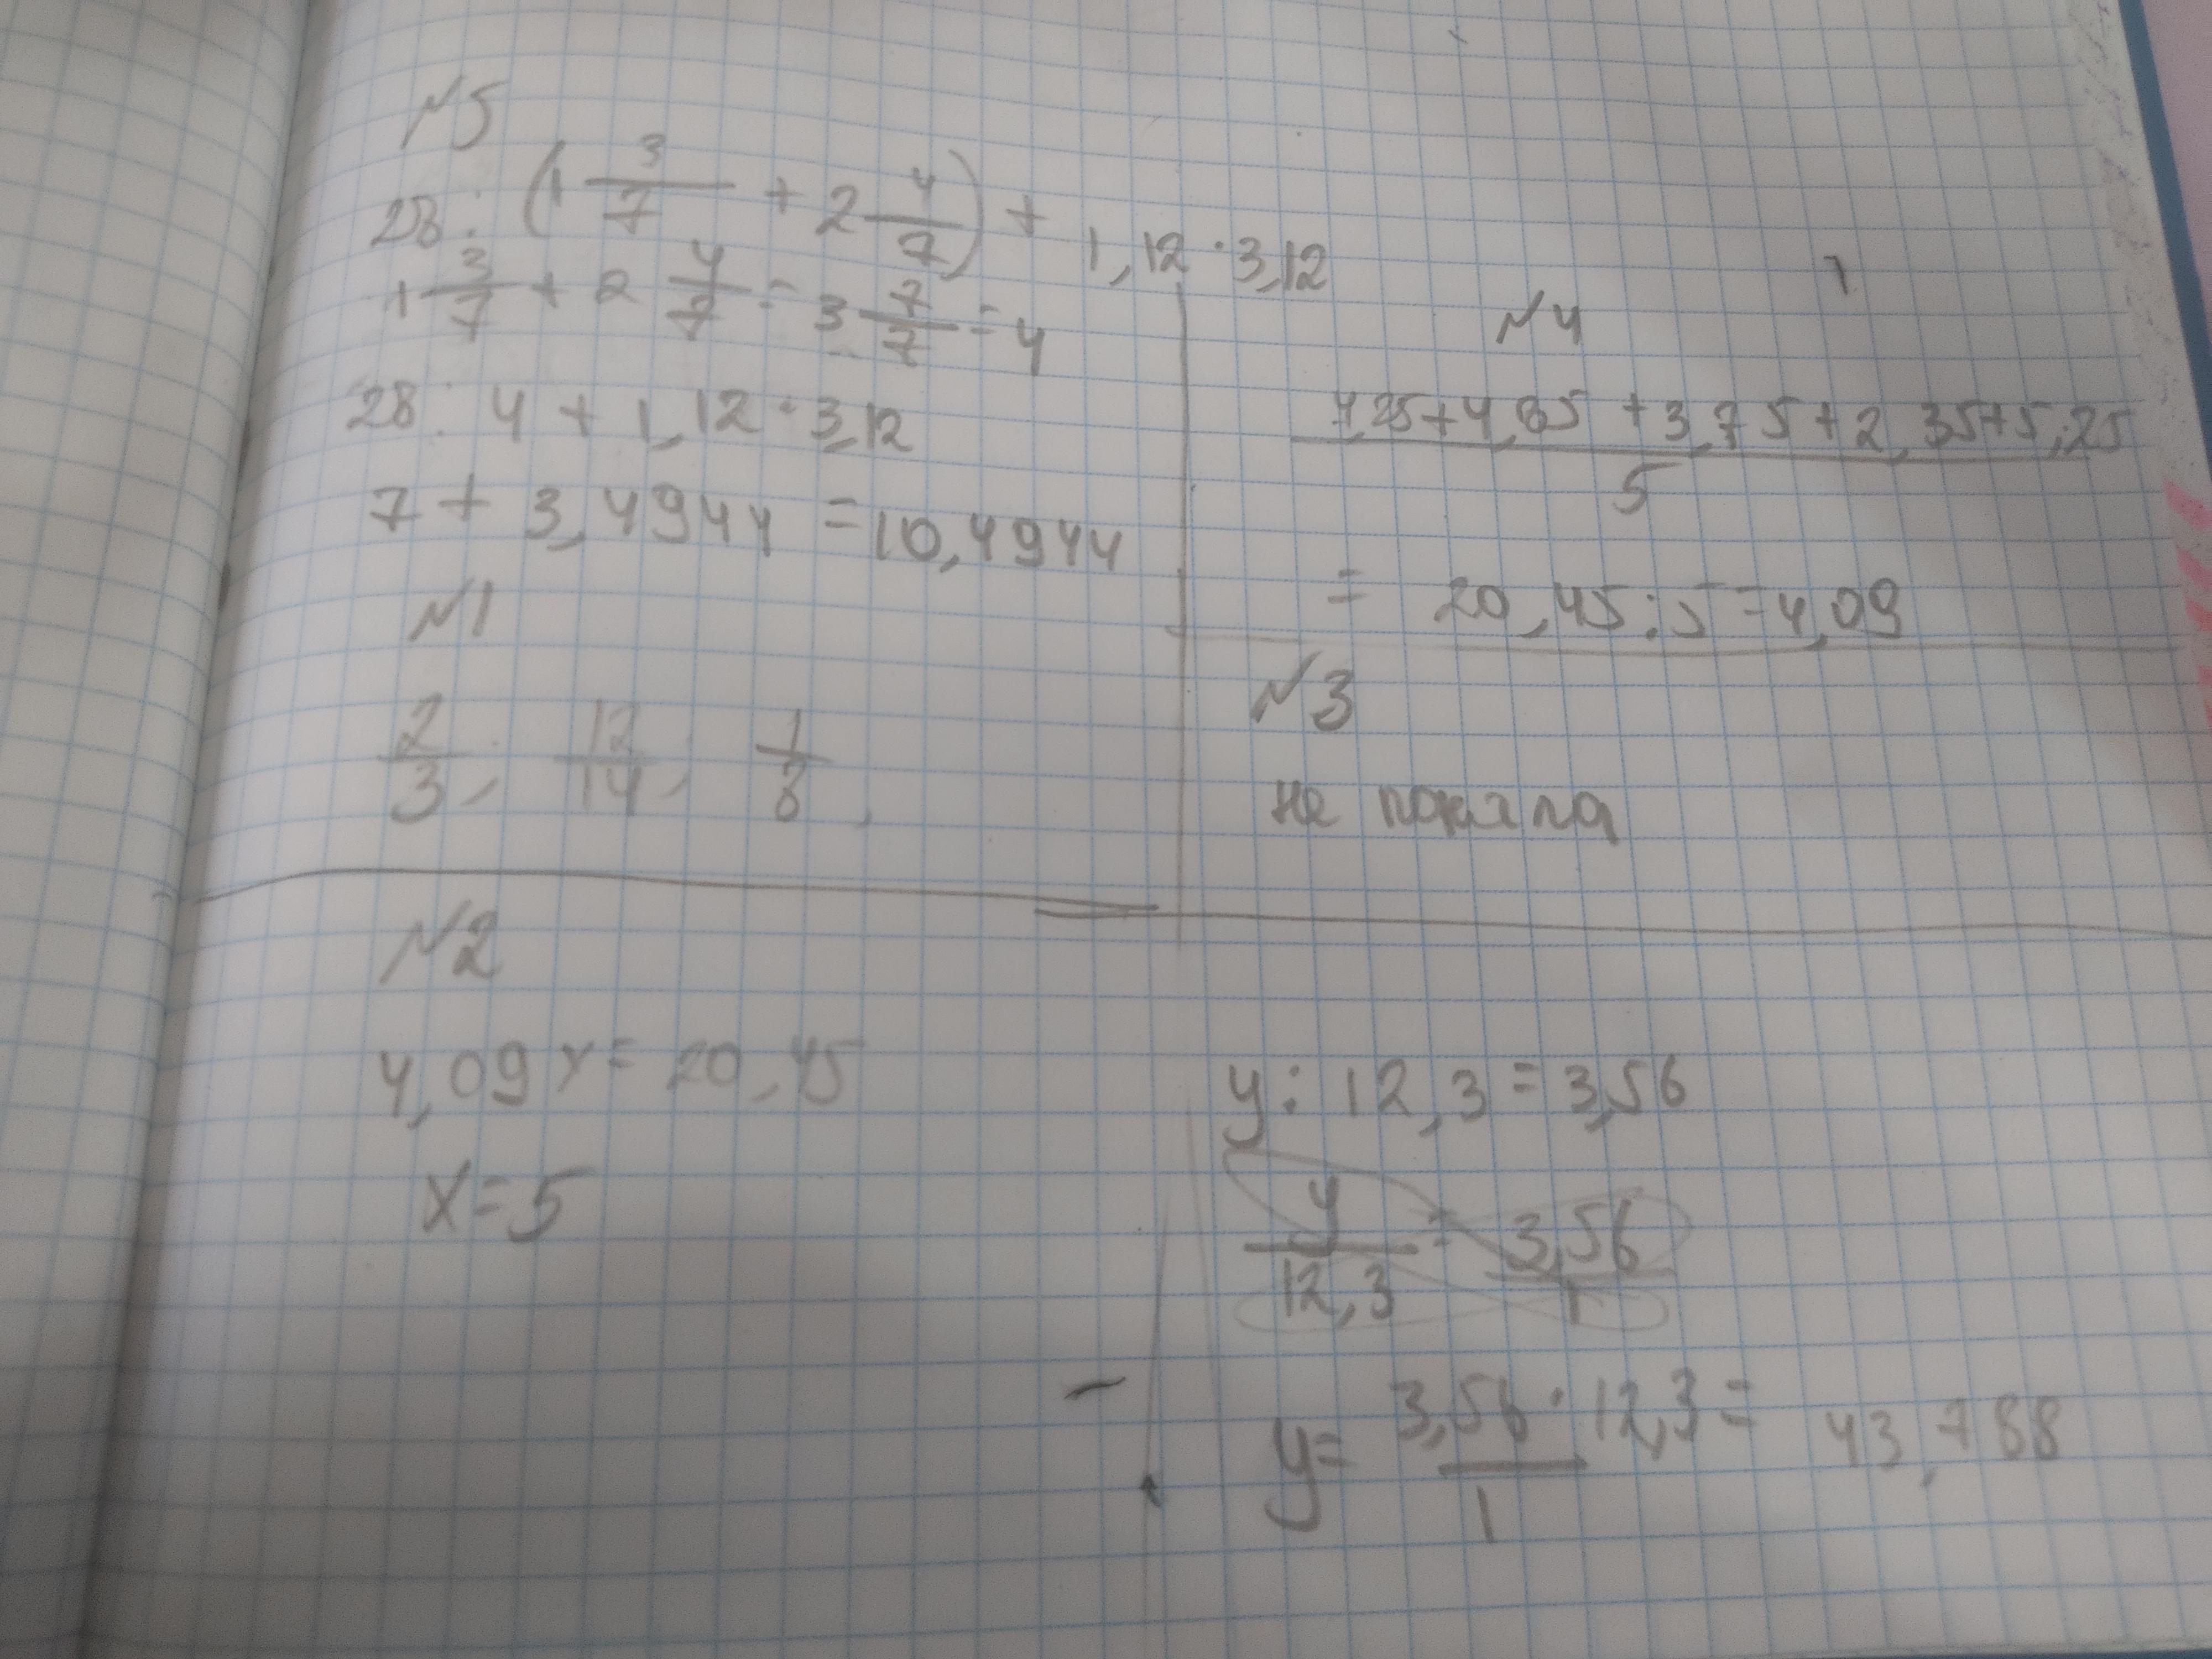 №5
28 : (1 3/7 + 2 4/7) + 1,12 · 3,12
1 3/7 + 2 4/7 = 3 7/7 = 4
28 : 4 + 1,12 · 3,12
7 + 3,4944 = 10,4944
№1
2/3; 12/14; 1/8,
№4
4,25+4,85+3,75+2,35+5,25
5
= 20,45:5=4,09
№3
не поняла
№2
4,09x=20,45
x=5
y:12,3=3,56
y/12,3 = 3,56/1
y= 3,56·12,3/1 = 43,788